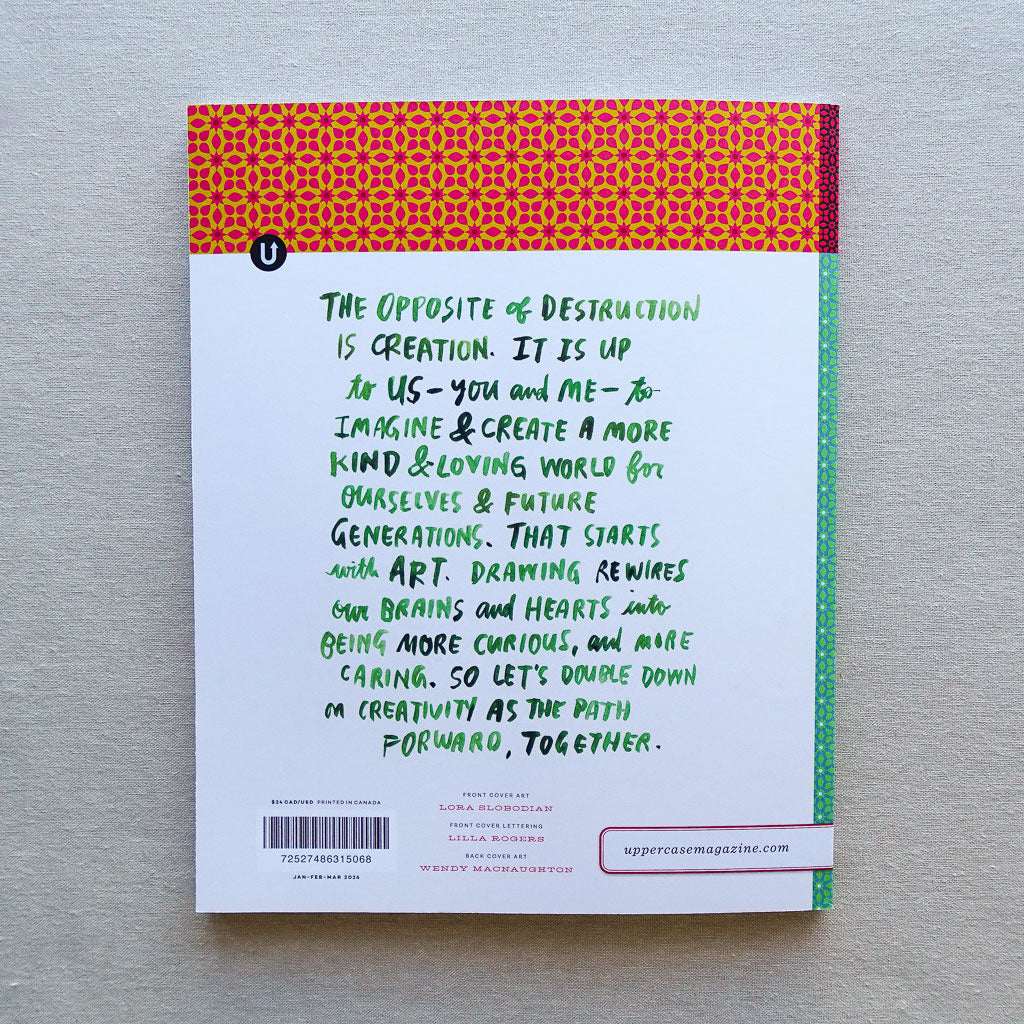 U
THE OPPOSITE of DESTRUCTION
IS CREATION. IT IS UP
to US – YOU and ME – to
IMAGINE & CREATE A MORE
KIND & LOVING WORLD for
OURSELVES & FUTURE
GENERATIONS. THAT STARTS
with ART. DRAWING REWIRES
our BRAINS and HEARTS into
BEING MORE CURIOUS, and MORE
CARING. SO LET'S DOUBLE DOWN
on CREATIVITY AS THE PATH
FORWARD, TOGETHER.
$24 CAD/USD PRINTED IN CANADA
72527486315068
JAN-FEB-MAR 2026
FRONT COVER ART
LORA SLOBODIAN
FRONT COVER LETTERING
LILLA ROGERS
BACK COVER ART
WENDY MACNAUGHTON
uppercasemagazine.com